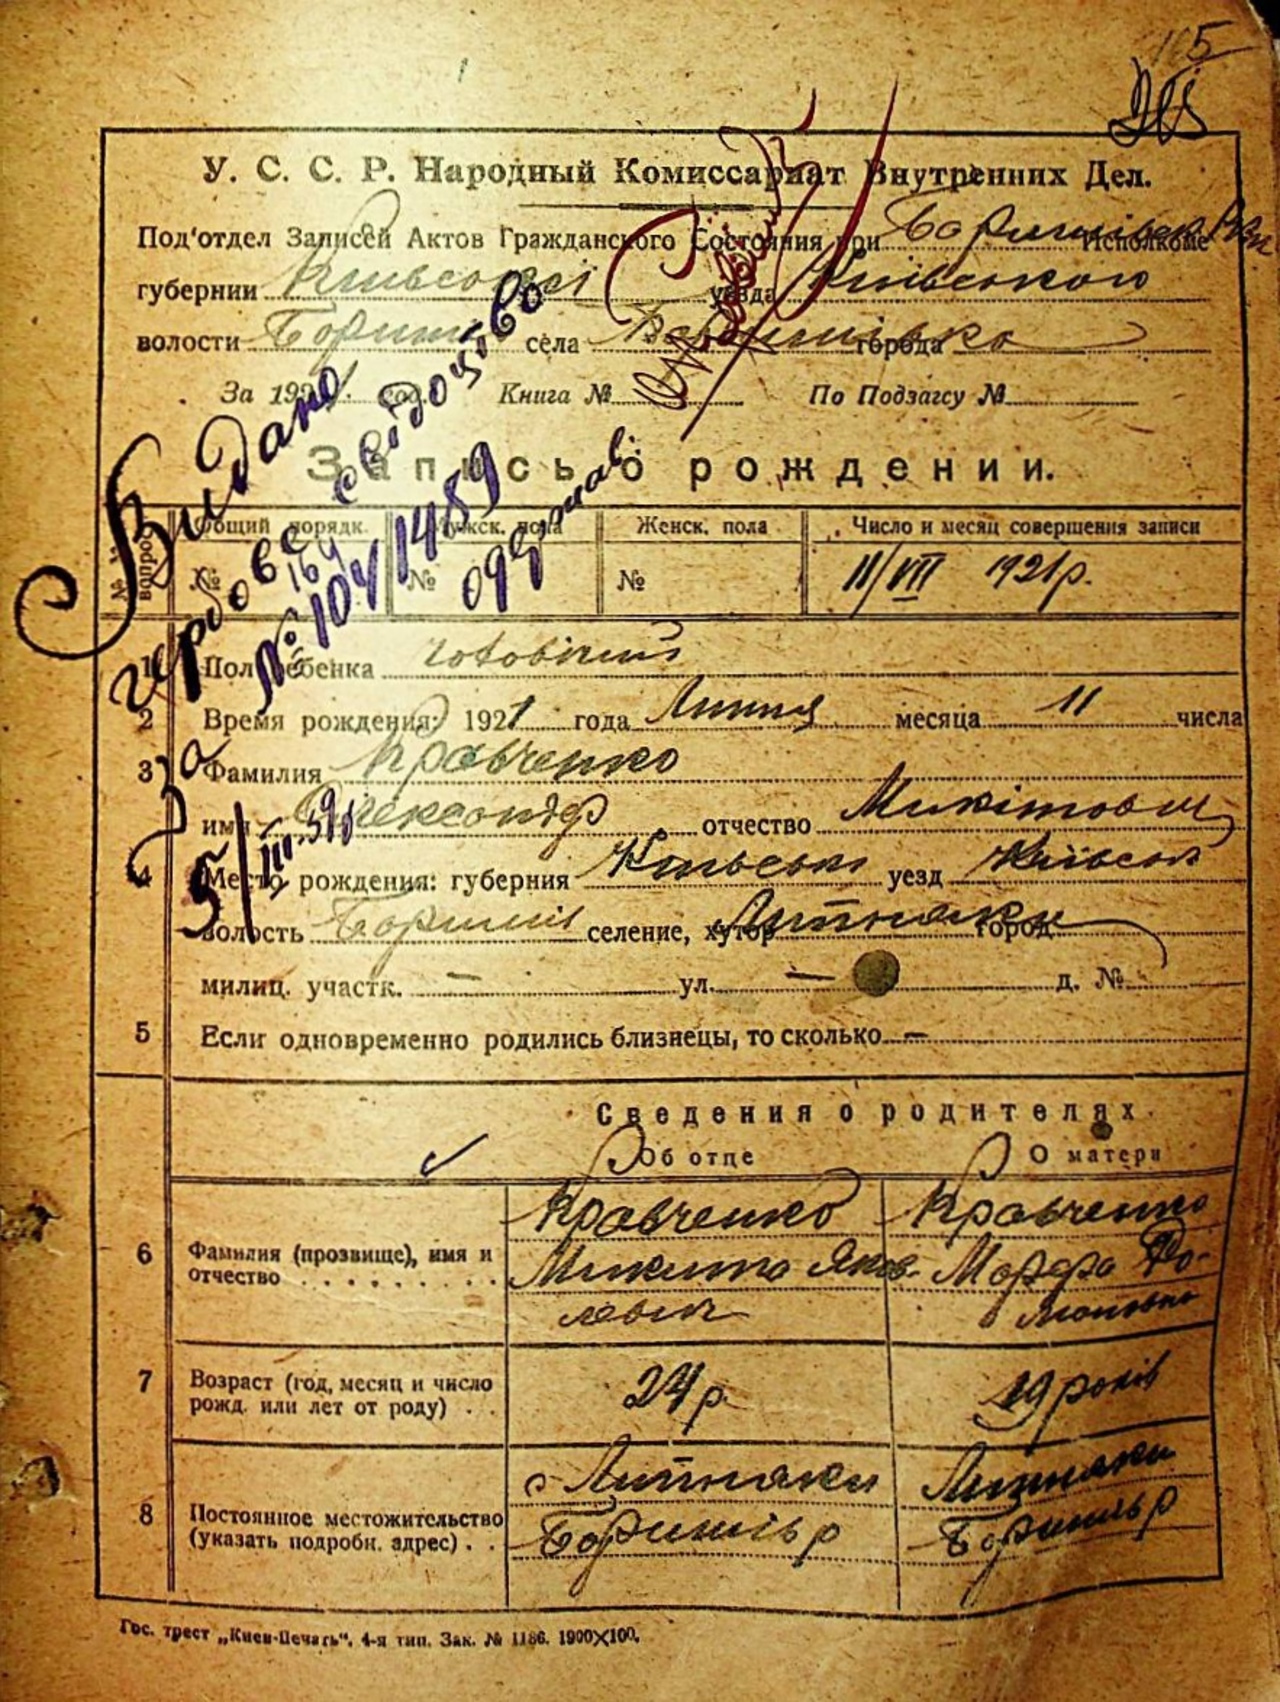 105
У. С. С. Р. Народный Комиссариат Внутренних Дел.
Под'отдел Записей Актов Гражданского Состояния при Исполкоме
губернии Київської уезда Київського
волости села города
За 1921 год. Книга № По Подзагсу №
Запись о рождении.
№ вопрос Общий порядк. Мужск. пола Женск. пола Число и месяц совершения записи
№ № № 11/VII 1921 р.
Видано
гербове свідоцтво
№ 104/1489
одержав
за
5/III-59р
1 Пол ребенка чоловічий
2 Время рождения: 1921 года Липня месяца 11 числа
3 Фамилия Кравченко
имя Олександр отчество Микітович
4 Место рождения: губерния Київська уезд Київськ
волость селение, хутор Литняки город
милиц. участк. — ул. — д. №
5 Если одновременно родились близнецы, то сколько —
Сведения о родителях
Об отце О матери
6 Фамилия (прозвище), имя и отчество Кравченко Кравченко
Микита Яков-
левич
7 Возраст (год, месяц и число рожд. или лет от роду) 24 р. 19 років
8 Постоянное местожительство (указать подробн. адрес) с Литняки Литняки
Гос. трест „Киев-Печать", 4-я тип. Зак. № 1186. 1900×100.